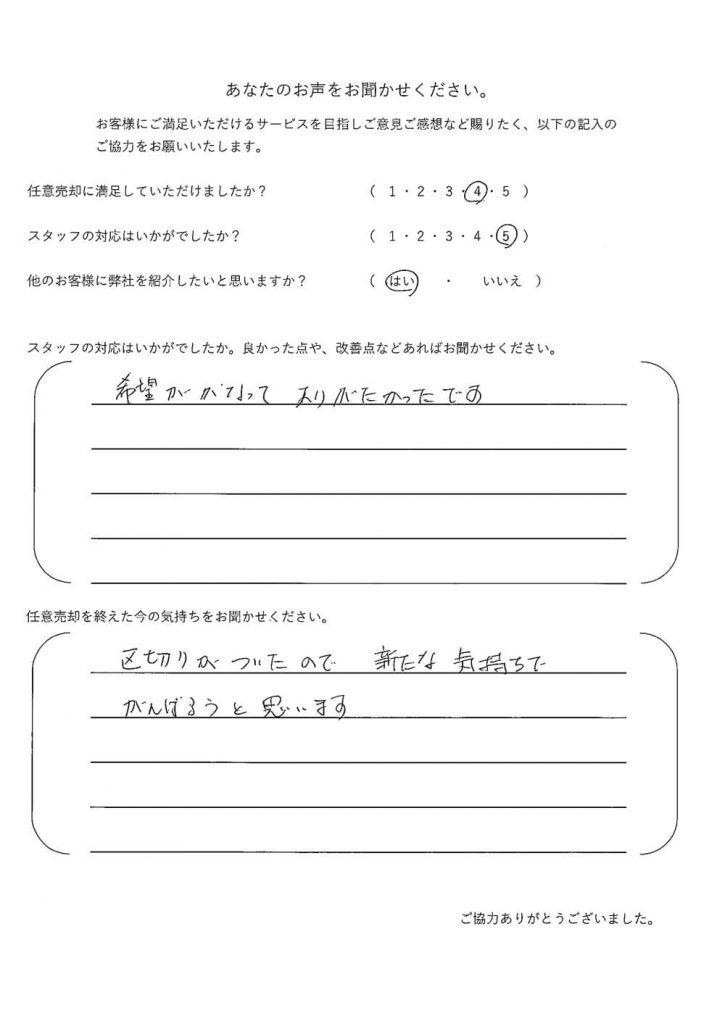 あなたのお声をお聞かせください。
お客様にご満足いただけるサービスを目指しご意見ご感想など賜りたく、以下の記入の
ご協力をお願いいたします。
任意売却に満足していただけましたか？ （ 1・2・3・4・5 ）
スタッフの対応はいかがでしたか？ （ 1・2・3・4・5 ）
他のお客様に弊社を紹介したいと思いますか？ （ はい ・ いいえ ）
スタッフの対応はいかがでしたか。良かった点や、改善点などあればお聞かせください。
希望がかなって ありがたかったです
任意売却を終えた今の気持ちをお聞かせください。
区切りがついたので 新たな気持ちで
がんばろうと思います
ご協力ありがとうございました。